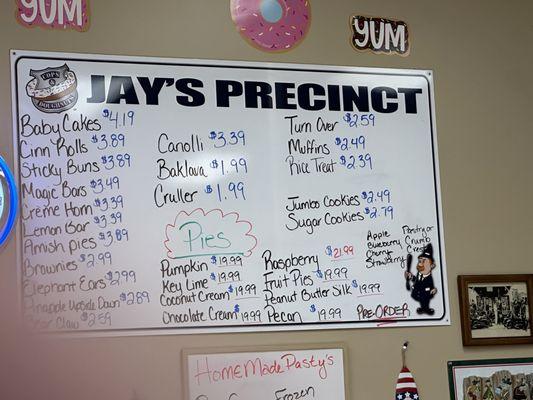 YUM
YUM
COPS & DOUGHNUTS
JAY'S PRECINCT
Baby Cakes $4.19
Cinn Rolls $3.89
Sticky Buns $3.89
Magic Bars $3.49
Créme Horn $3.39
Lemon Bar $3.39
Amish pies $3.89
Brownies $2.99
Elephant Ears $2.99
Pineapple Upside Down $2.89
Bear Claw $2.59
Canolli $3.39
Baklava $1.99
Cruller $1.99
Turn Over $2.59
Muffins $2.49
Rice Treat $2.39
Jumbo Cookies $2.49
Sugar Cookies $2.79
Pies
Pumpkin $19.99
Key Lime $19.99
Coconut Cream $19.99
Chocolate Cream $19.99
Raspberry $21.99
Fruit Pies $19.99
Peanut Butter Silk $19.99
Pecan $19.99
Apple
Blueberry
Cherry
Strawberry
Pastry or
Crumb
Crust
PRE-ORDER
HomeMade Pasty's
Frozen